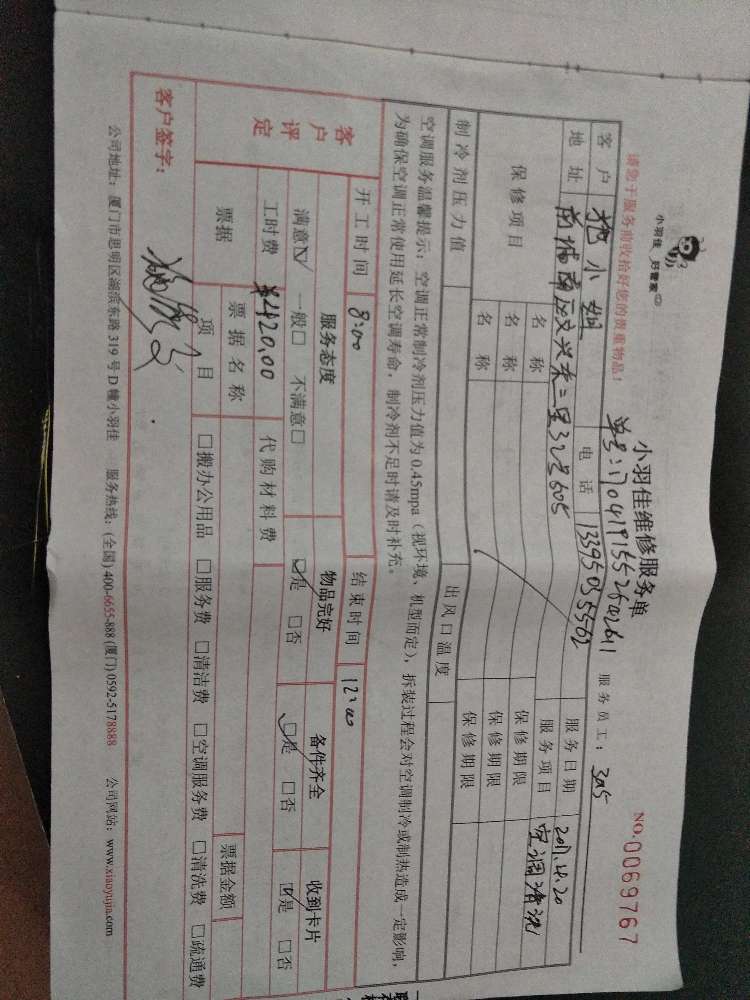 小羽佳 好管家
小羽佳维修服务单
NO.0069767
请您于服务前收拾好您的贵重物品!
单号:170419155
服务员工: 305
客户 施小姐 电话 服务日期 2017.4.20
地址 服务项目 空调清洗
保修项目 名称 保修期限
名称 保修期限
名称 保修期限
制冷剂压力值 出风口温度
空调服务温馨提示:空调正常制冷剂压力值为0.45mpa(视环境、机型而定),拆装过程会对空调制冷或制热造成一定影响,
为确保空调正常使用延长空调寿命,制冷剂不足时请及时补充。
开工时间 8:00 结束时间 12:00
客户评定 服务态度 物品完好 备件齐全 收到卡片
满意☑ 一般□ 不满意□ ☑是 □否 ☑是 □否 ☑是 □否
工时费 ¥420.00 代购材料费
票据 票据名称 票据金额
项目 □搬办公用品 □服务费 □清洁费 □空调服务费 □清洗费 □疏通费
客户签字:
公司地址:厦门市思明区湖滨东路319号D幢小羽佳 服务热线:(全国)400-6655-888 (厦门)0592-5178888 公司网站:www.xiaoyujia.com